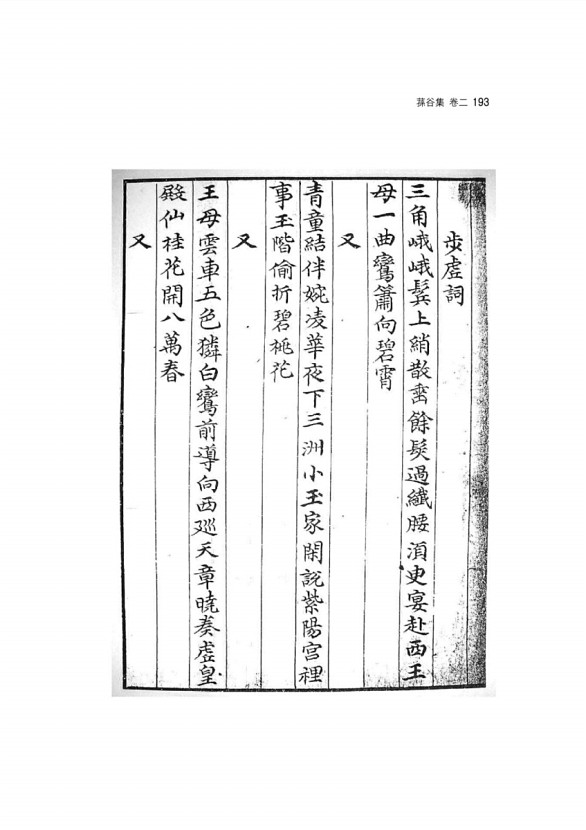 蓀谷集 卷二 193
步虛詞
三角峨峨鬂上綃散垂餘髮過纖腰須史宴赴西王
母一曲鸞簫向碧霄
又
青童結伴婉凌華夜下三洲小玉家閑說紫陽宮裡
事玉階偷折碧桃花
又
王母雲車五色獜白鸞前導向西廵天章曉奏虛皇
殿仙桂花開八萬春
又